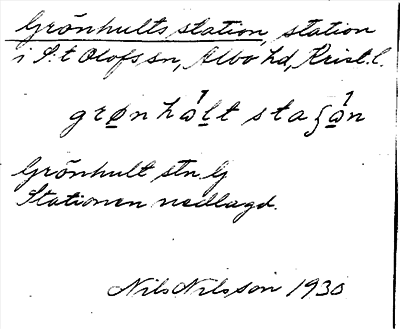 Grönhults station, station
i S:t Olofs sn, Albo hd, Krist. l.
grønha̱lt sta
Grönhult stn G
Stationen nedlagd.
Nils Nilsson 1930